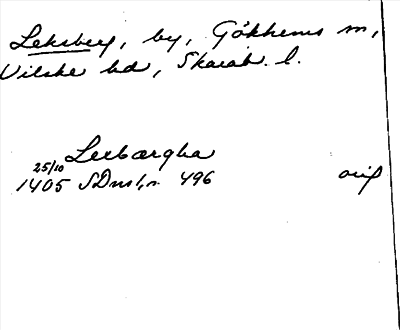 Leksberg, by, Gökhems sn,
Vilske hd, Skarab. l.
Lecbærgha
25/10
1405 SDns 1, nr 496 orig